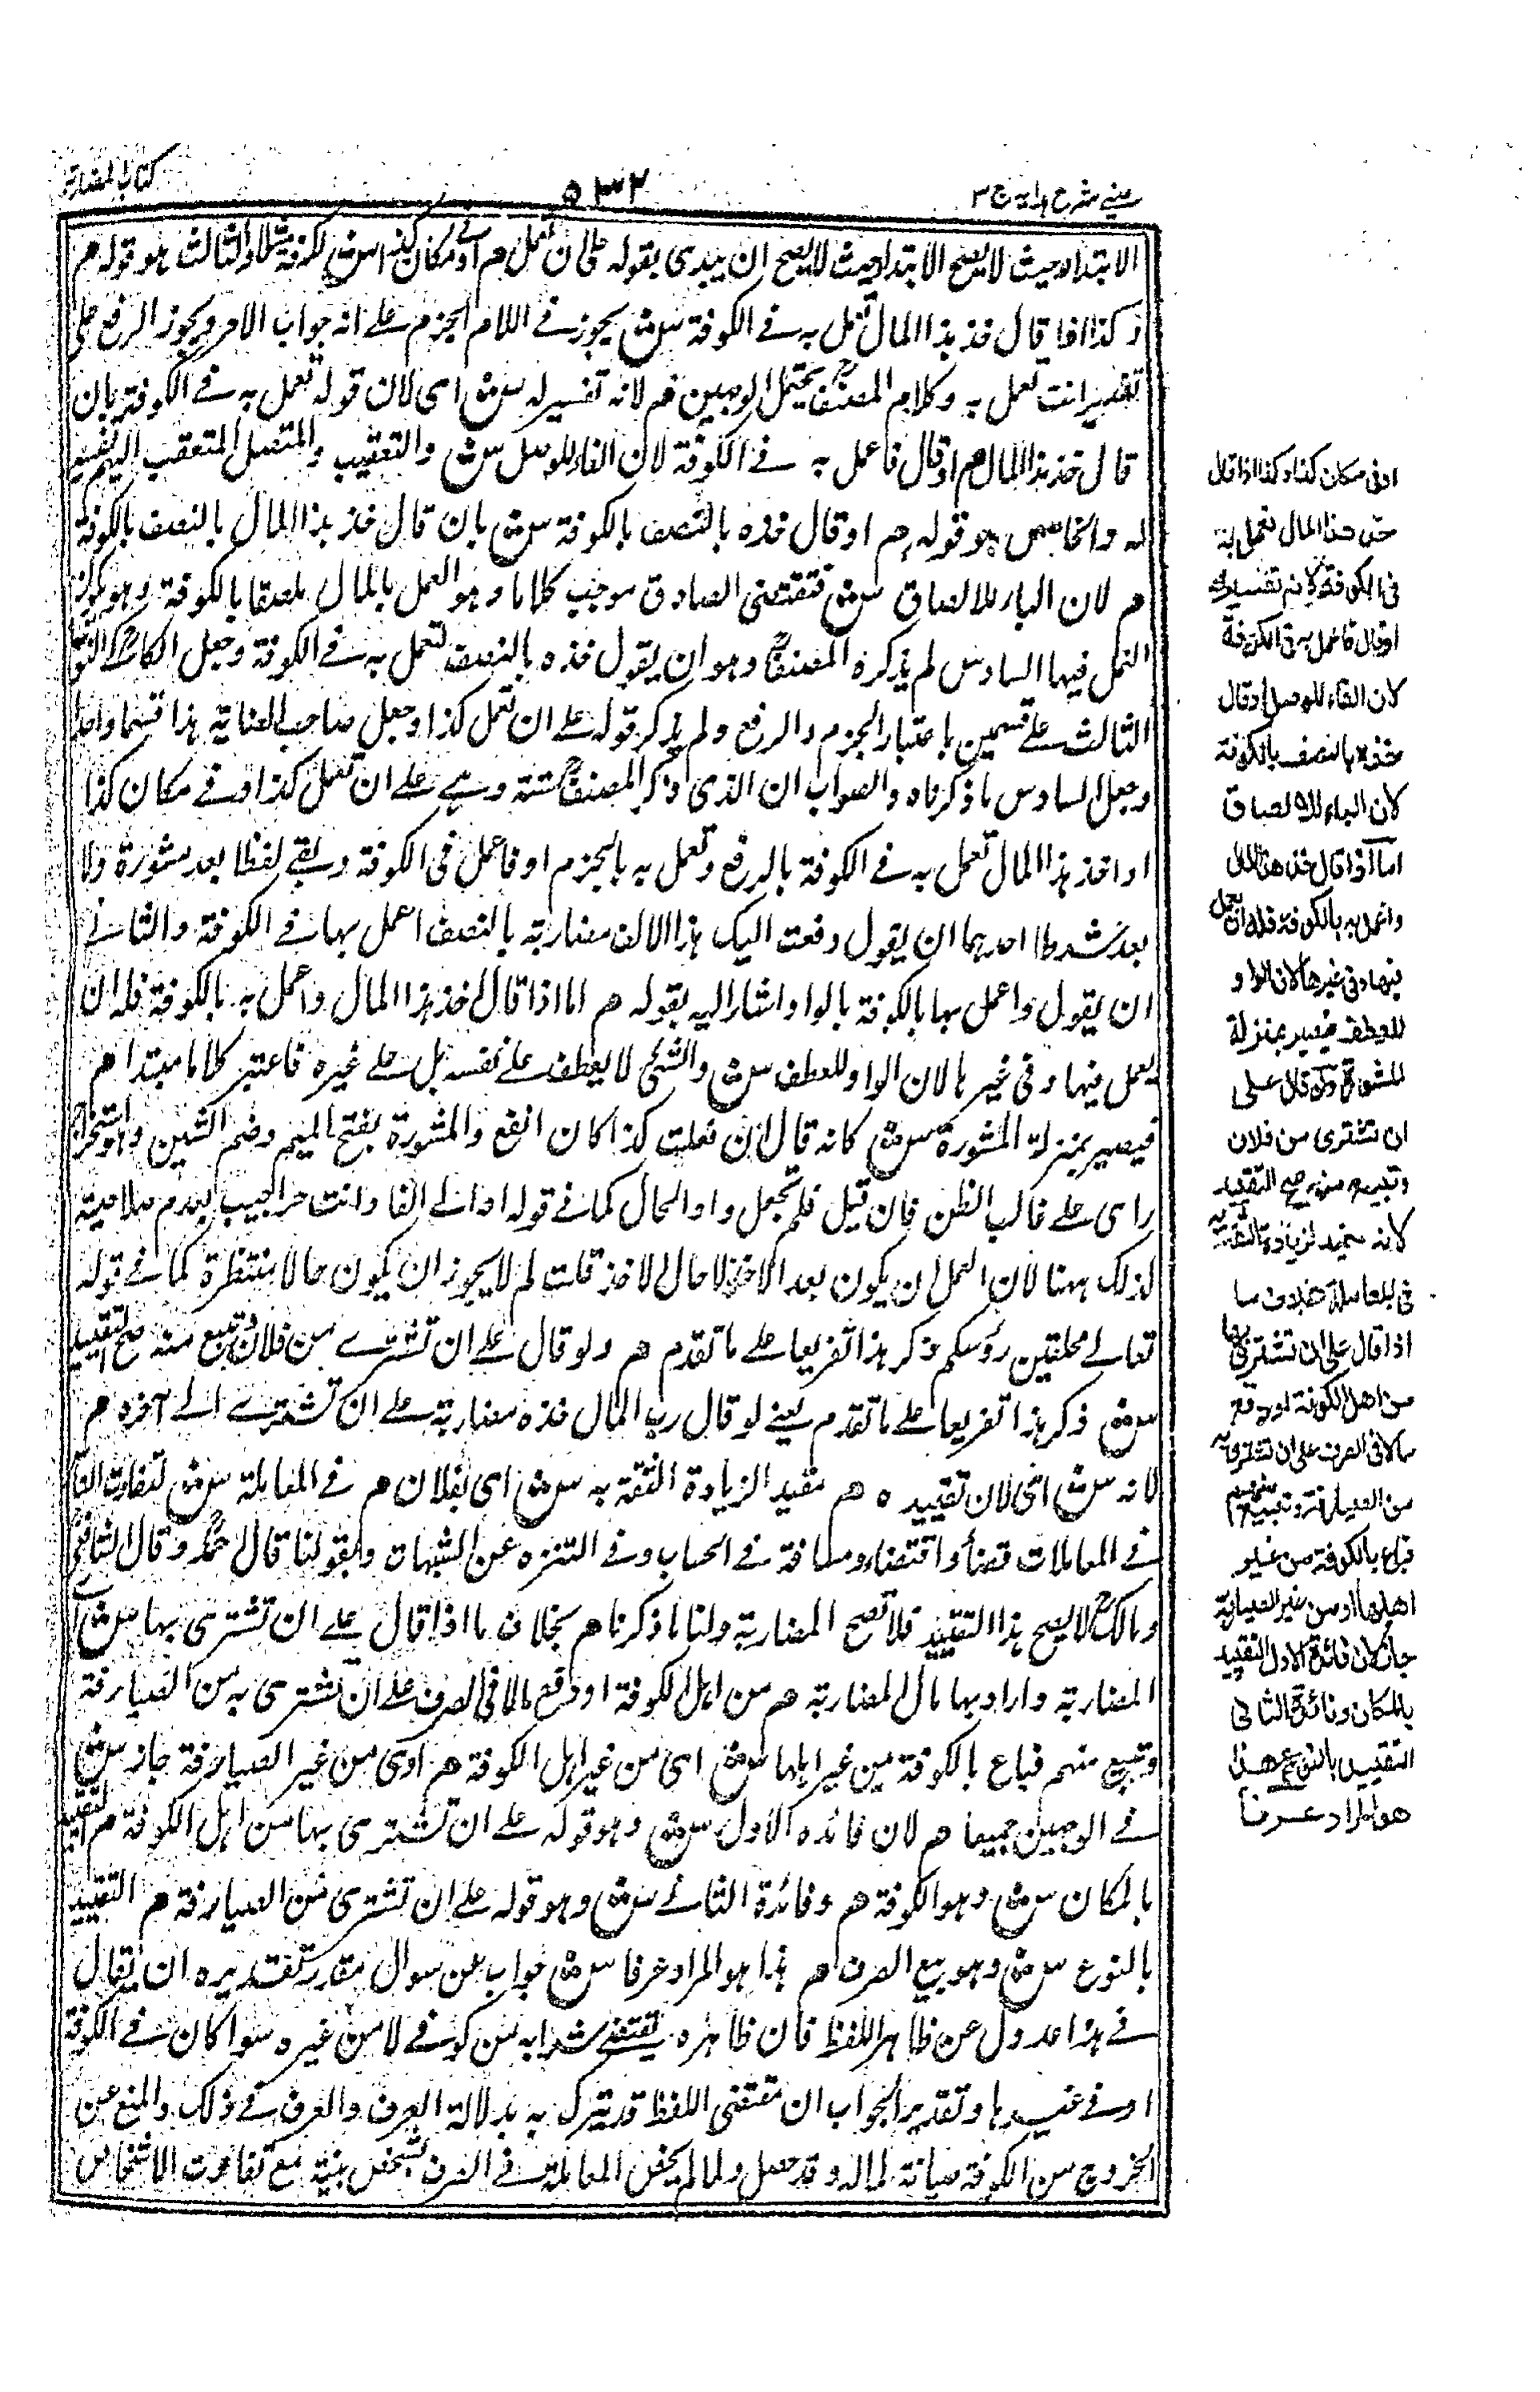 عینی شرح ہدایہ ج ٣
٥٣٢
کتاب المضاربة
الابتداء وحيث لا يصح الابتداء وحيث لا يصح ان يبتدى بقوله على ان تعمل هم او فی مكان كذا ش الكوفة مثلا والثالث هو قوله هم
وكذا اذا قال خذ هذا المال تعمل به فى الكوفة ش يجوز فى اللام الجزم على انه جواب الامر ويجوز الرفع على
تقدير انت تعمل به وكلام المصنف يحتمل الوجهين هم لانه تفسير له ش اى لان قوله تعمل به فى الكوفة بان
قال خذ هذا المال هم او قال فاعمل به فى الكوفة لان الفاء للوصل ش والتعقيب والمتصل المتعقب المبهم تفسير
له والخامس هو قوله هم او قال خذه بالنصف بالكوفة ش بان قال خذ هذا المال بالنصف بالكوفة
هم لان الباء للالصاق ش فتقتضى الصادق موجب كلامه وهو العمل بالمال ملصقا بالكوفة وهو كون
العمل فيها السادس لم يذكره المصنف وهو ان يقول خذه بالنصف لتعمل به فى الكوفة وجعل الكاكى
الثالث على قسمين باعتبار الجزم والرفع ولم يذكر قوله على ان تعمل كذا وجعل صاحب العناية هذا قسما واحدا
وجعل السادس ما ذكرناه والصواب ان الذى ذكر المصنف ستة وهى على ان تعمل كذا او فى مكان كذا
او اخذ هذا المال تعمل به فى الكوفة بالرفع وتعمل به بالجزم او فاعمل فى الكوفة وبقى لفظا بعد مشورة ولا
يعد شرطا احدهما ان يقول دفعت اليك هذا الالف مضاربة بالنصف اعمل بها فى الكوفة والثانى
ان يقول واعمل بها بالكوفة بالواو واشار اليه بقوله هم اما اذا قال خذ هذا المال واعمل به بالكوفة فله ان
يعمل فيها وفى غيرها لان الواو للعطف ش والشئ لا يعطف على نفسه بل على غيره فاعتبر كلاما مبتدا هم
فيصير بمنزلة المشورة ش كانه قال ان فعلت كذا كان انفع والمشورة بفتح الميم وضم الشين وهو استخراج
راى على غالب الظن فان قيل فلم تجعل واو الحال كما فى قوله اد الى الفا وانت حر اجيب لعدم صلاحيته
لذلك ههنا لان العمل ان يكون بعد الاخذ لا حال الاخذ قلت لم لا يجوز ان يكون حالا منتظرة كما فى قوله
تعالى محلقين رؤسكم ذكر هذا تفريعا على ما تقدم هم ولو قال على ان تشترى من فلان وتبيع منه صح التقييد
ش ذكر هذا تفريعا على ما تقدم يعنى لو قال رب المال خذه مضاربة على ان تشترى الى آخره هم
لانه ش اى لان تقييده هم مقيد لزيادة الثقة به ش اى بفلان هم فى المعاملة ش لتفاوت الناس
فى المعاملات قضاء واقتضاء ومسافة فى الحساب وفى التنزه عن الشبهات وبقولنا قال احمد وقال الشافعى
ومالك لا يصح هذا التقييد فلا تصح المضاربة ولنا ما ذكرنا هم بخلاف ما اذا قال على ان تشترى بها ش
المضاربة واراد بها مال المضاربة هم من اهل الكوفة او دفع مالا فى الصرف على ان تشترى به من الصيارفة
وتبيع منهم فباع بالكوفة من غير اهلها ش اى من غير اهل الكوفة هم او من غير الصيارفة جاز ش
فى الوجهين جميعا هم لان فائده الاول ش وهو قوله على ان تشترى بها من اهل الكوفة هم التقييد
بالمكان ش وهو الكوفة هم وفائدة الثانى ش وهو قوله على ان تشترى من الصيارفة هم التقييد
بالنوع ش وهو بيع الصرف هم هذا هو المراد عرفا ش جواب عن سوال مقدر تقديره ان يقال
فى هذا عدول عن ظاهر اللفظ فان ظاهره يقتضى شرابه من كوفى لا من غيره سواء كان فى الكوفة
او فى غيرها وتقدير الجواب ان مقتضى اللفظ قد يترك به بدلالة العرف والعرف فى ذلك والمنع عن
الخروج من الكوفة صيانة لماله وقد حصل ولما لم يخص المعاملة فى الصرف لشخص بنية مع تفاوت الاشخاص
اوفى مكان كذا وكذا اذا قال
خذ هذا المال تعمل به
فى الكوفة لانه تفسير له
او قال فاعمل به فى الكوفة
لان الفاء للوصل او قال
خذه بالنصف بالكوفة
لان الباء للالصاق
اما اذا قال خذ هذا المال
واعمل به بالكوفة فله ان يعمل
فيها وفى غيرها لان الواو
للعطف فيصير بمنزلة
المشورة ولو قال على
ان تشترى من فلان
وتبيع منه صح التقييد
لانه مفيد لزيادة الثقة به
فى المعاملة بخلاف ما
اذا قال على ان تشترى بها
من اهل الكوفة او دفع
مالا فى الصرف على ان تشترى به
من الصيارفة وتبيع منهم
فباع بالكوفة من غير
اهلها او من غير الصيارفة
جاز لان فائدة الاول التقييد
بالمكان وفائدة الثانى
التقييد بالنوع هذا
هو المراد عرفا